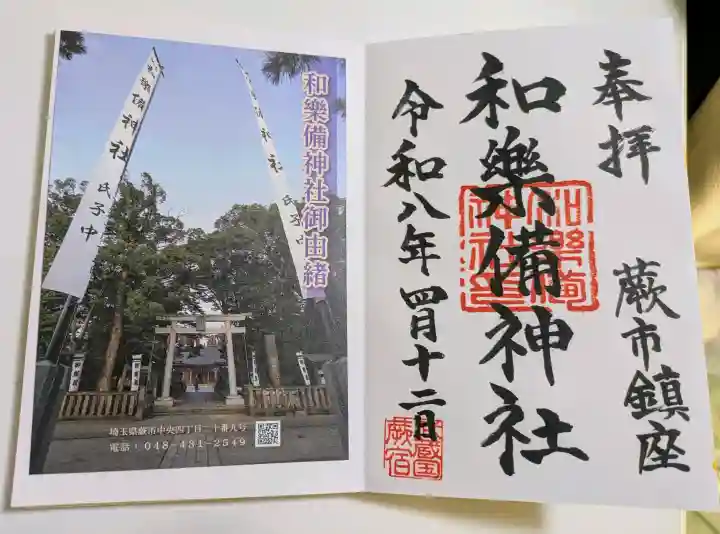 和樂備神社御由緒
御備神社
氏子中
埼玉県蕨市中央四丁目二十番九号
電話：048-431-2549
奉拝
蕨市鎮座
和樂備神社
令和八年四月十二日
蕨宿